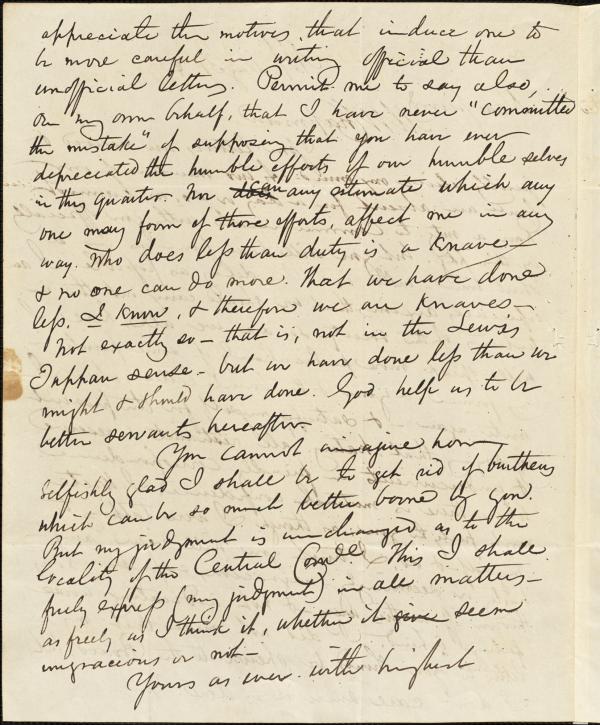 appreciate the motives, that induce one to
be more careful in writing official than
unofficial letters. Permit me to say also,
on my own behalf, that I have never "committed
the mistake" of supposing that you have ever
depreciated the humble efforts of our humble selves
in this quarter. Nor does can any estimate which any
one may form of those efforts, affect me in any
way. Who does less than duty is a Knave –
& no one can do more. That we have done
less, I Know, & therefore we are Knaves –
Not exactly so – that is, not in the Lewis
Tappan sense – but we have done less than we
might & should have done. God help us to be
better servants hereafter.
You cannot imagine how
selfishly glad I shall be to get rid of burthens
which can be so much better borne by you.
But my judgment is unchanged as to the
locality of the Central Com.ee This I shall
freely express (my judgment) in all matters –
as freely as I think it, whether it give seem
ungracious or not –
Yours as ever with highest